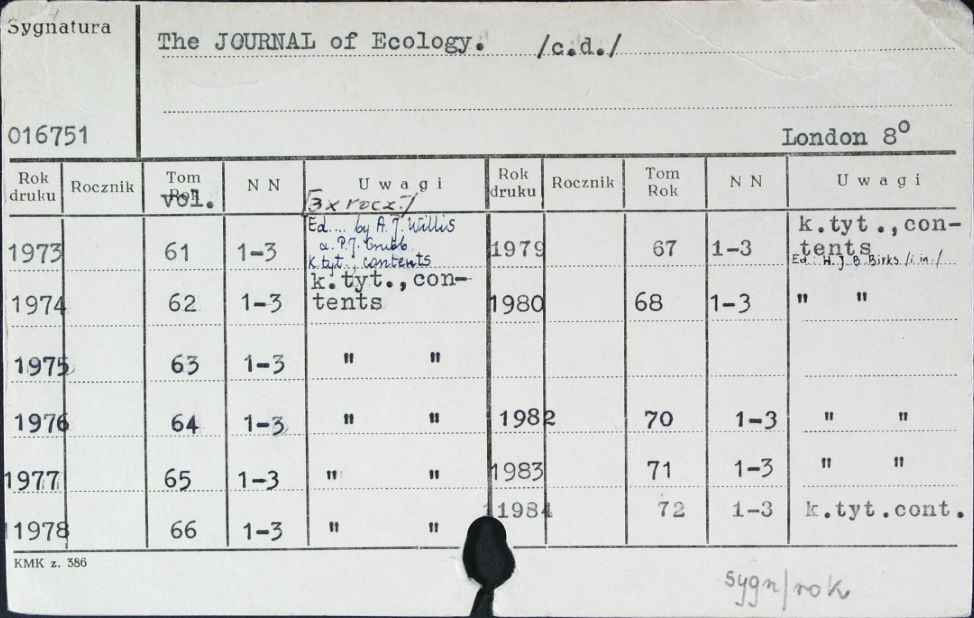 Sygnatura
The JOURNAL of Ecology. /c.d./
016751
London 8°
Rok druku Rocznik Tom Rok NN Uwagi Rok druku Rocznik Tom Rok NN Uwagi
vol. 3 x rocz./
Ed.... by A. J. Willis
a. P.J. Grubb
k.tyt., contents
1973 61 1-3
k.tyt.,con-
tents
1974 62 1-3
1975 63 1-3 " "
1976 64 1-3 " "
1977 65 1-3 " "
1978 66 1-3 " "
k.tyt.,con-
tents
1979 67 1-3
Ed. H. J. B. Birks /i in./
1980 68 1-3 " "
1982 70 1-3 " "
1983 71 1-3 " "
1984 72 1-3 k.tyt.cont.
KMK z. 386
sygn/rok